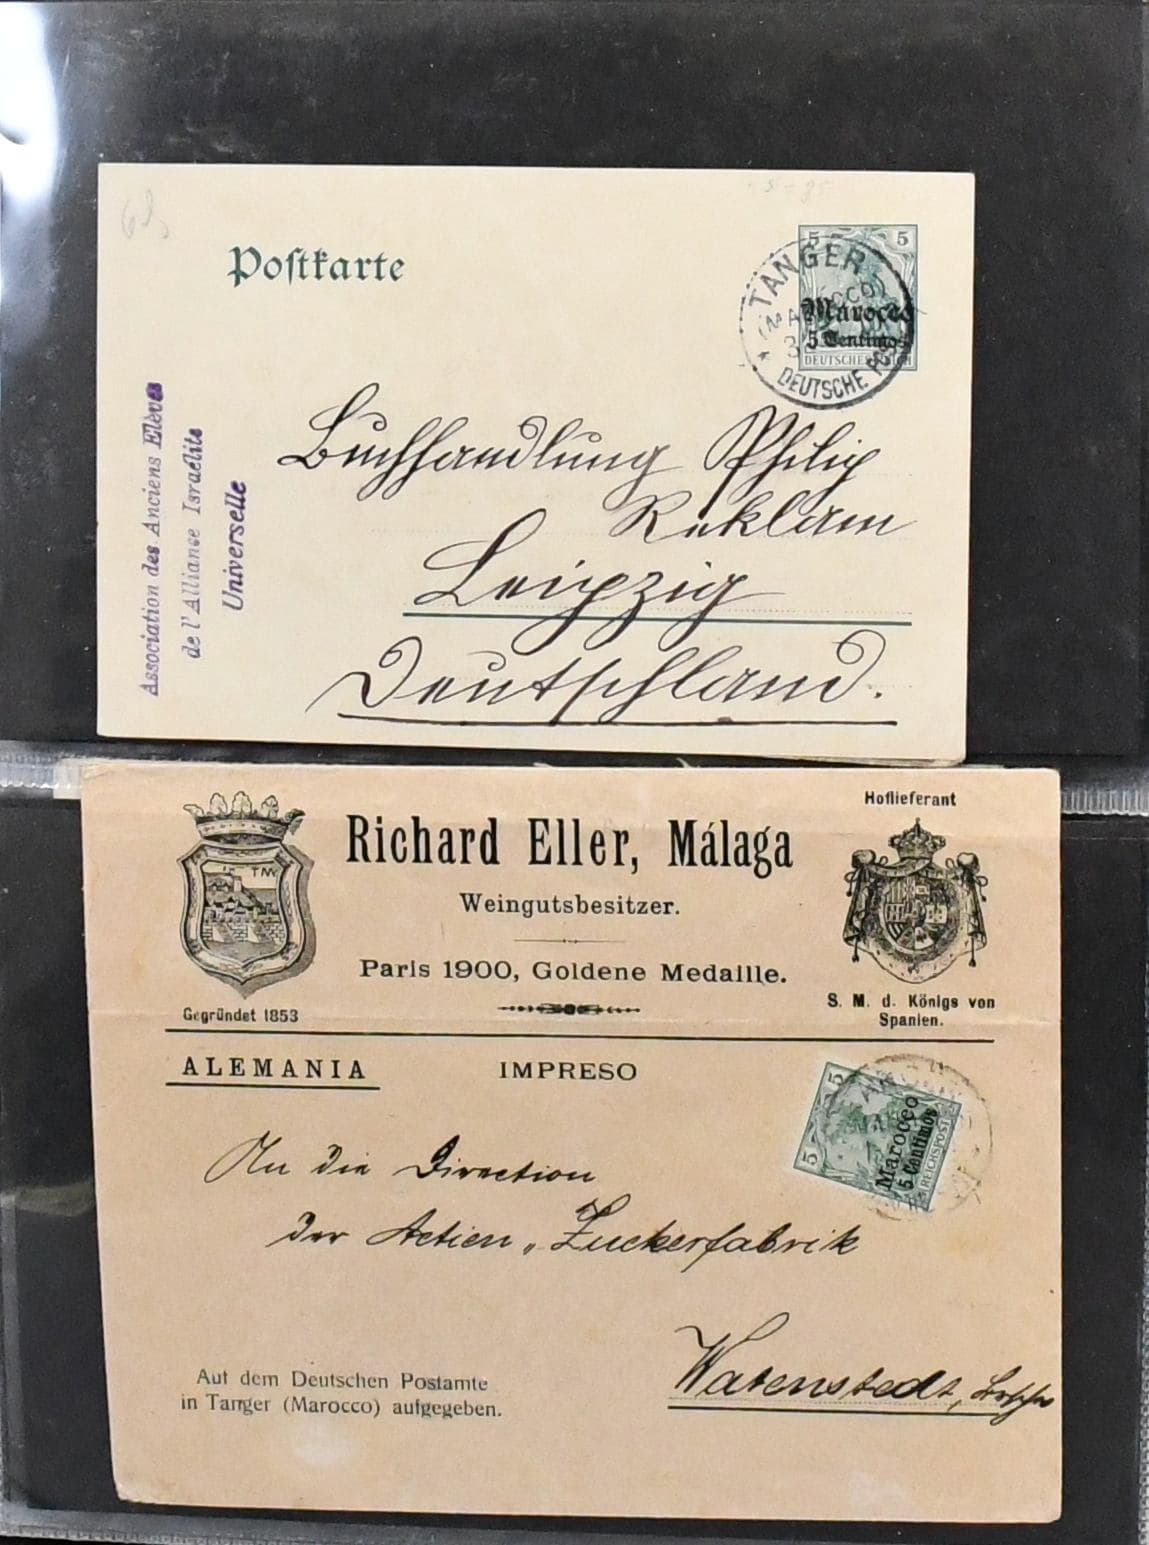 Postkarte
5 5
Marocco
5 Centimos
DEUTSCHES REICH
TANGER
(MAROCCO)
DEUTSCHE POST
Association des Anciens Elèves
de l'Alliance Israélite
Universelle
Buchhandlung Philip
Reklam
Leipzig
Deutschland.
Richard Eller, Málaga
Weingutsbesitzer.
Paris 1900, Goldene Medaille.
Gegründet 1853
Hoflieferant
S. M. d. Königs von
Spanien.
ALEMANIA
IMPRESO
5 5
Marocco
5 Centimos
REICHSPOST
An die Direction
der Actien „Zuckerfabrik
Watenstedt,
Auf dem Deutschen Postamte
in Tanger (Marocco) aufgegeben.